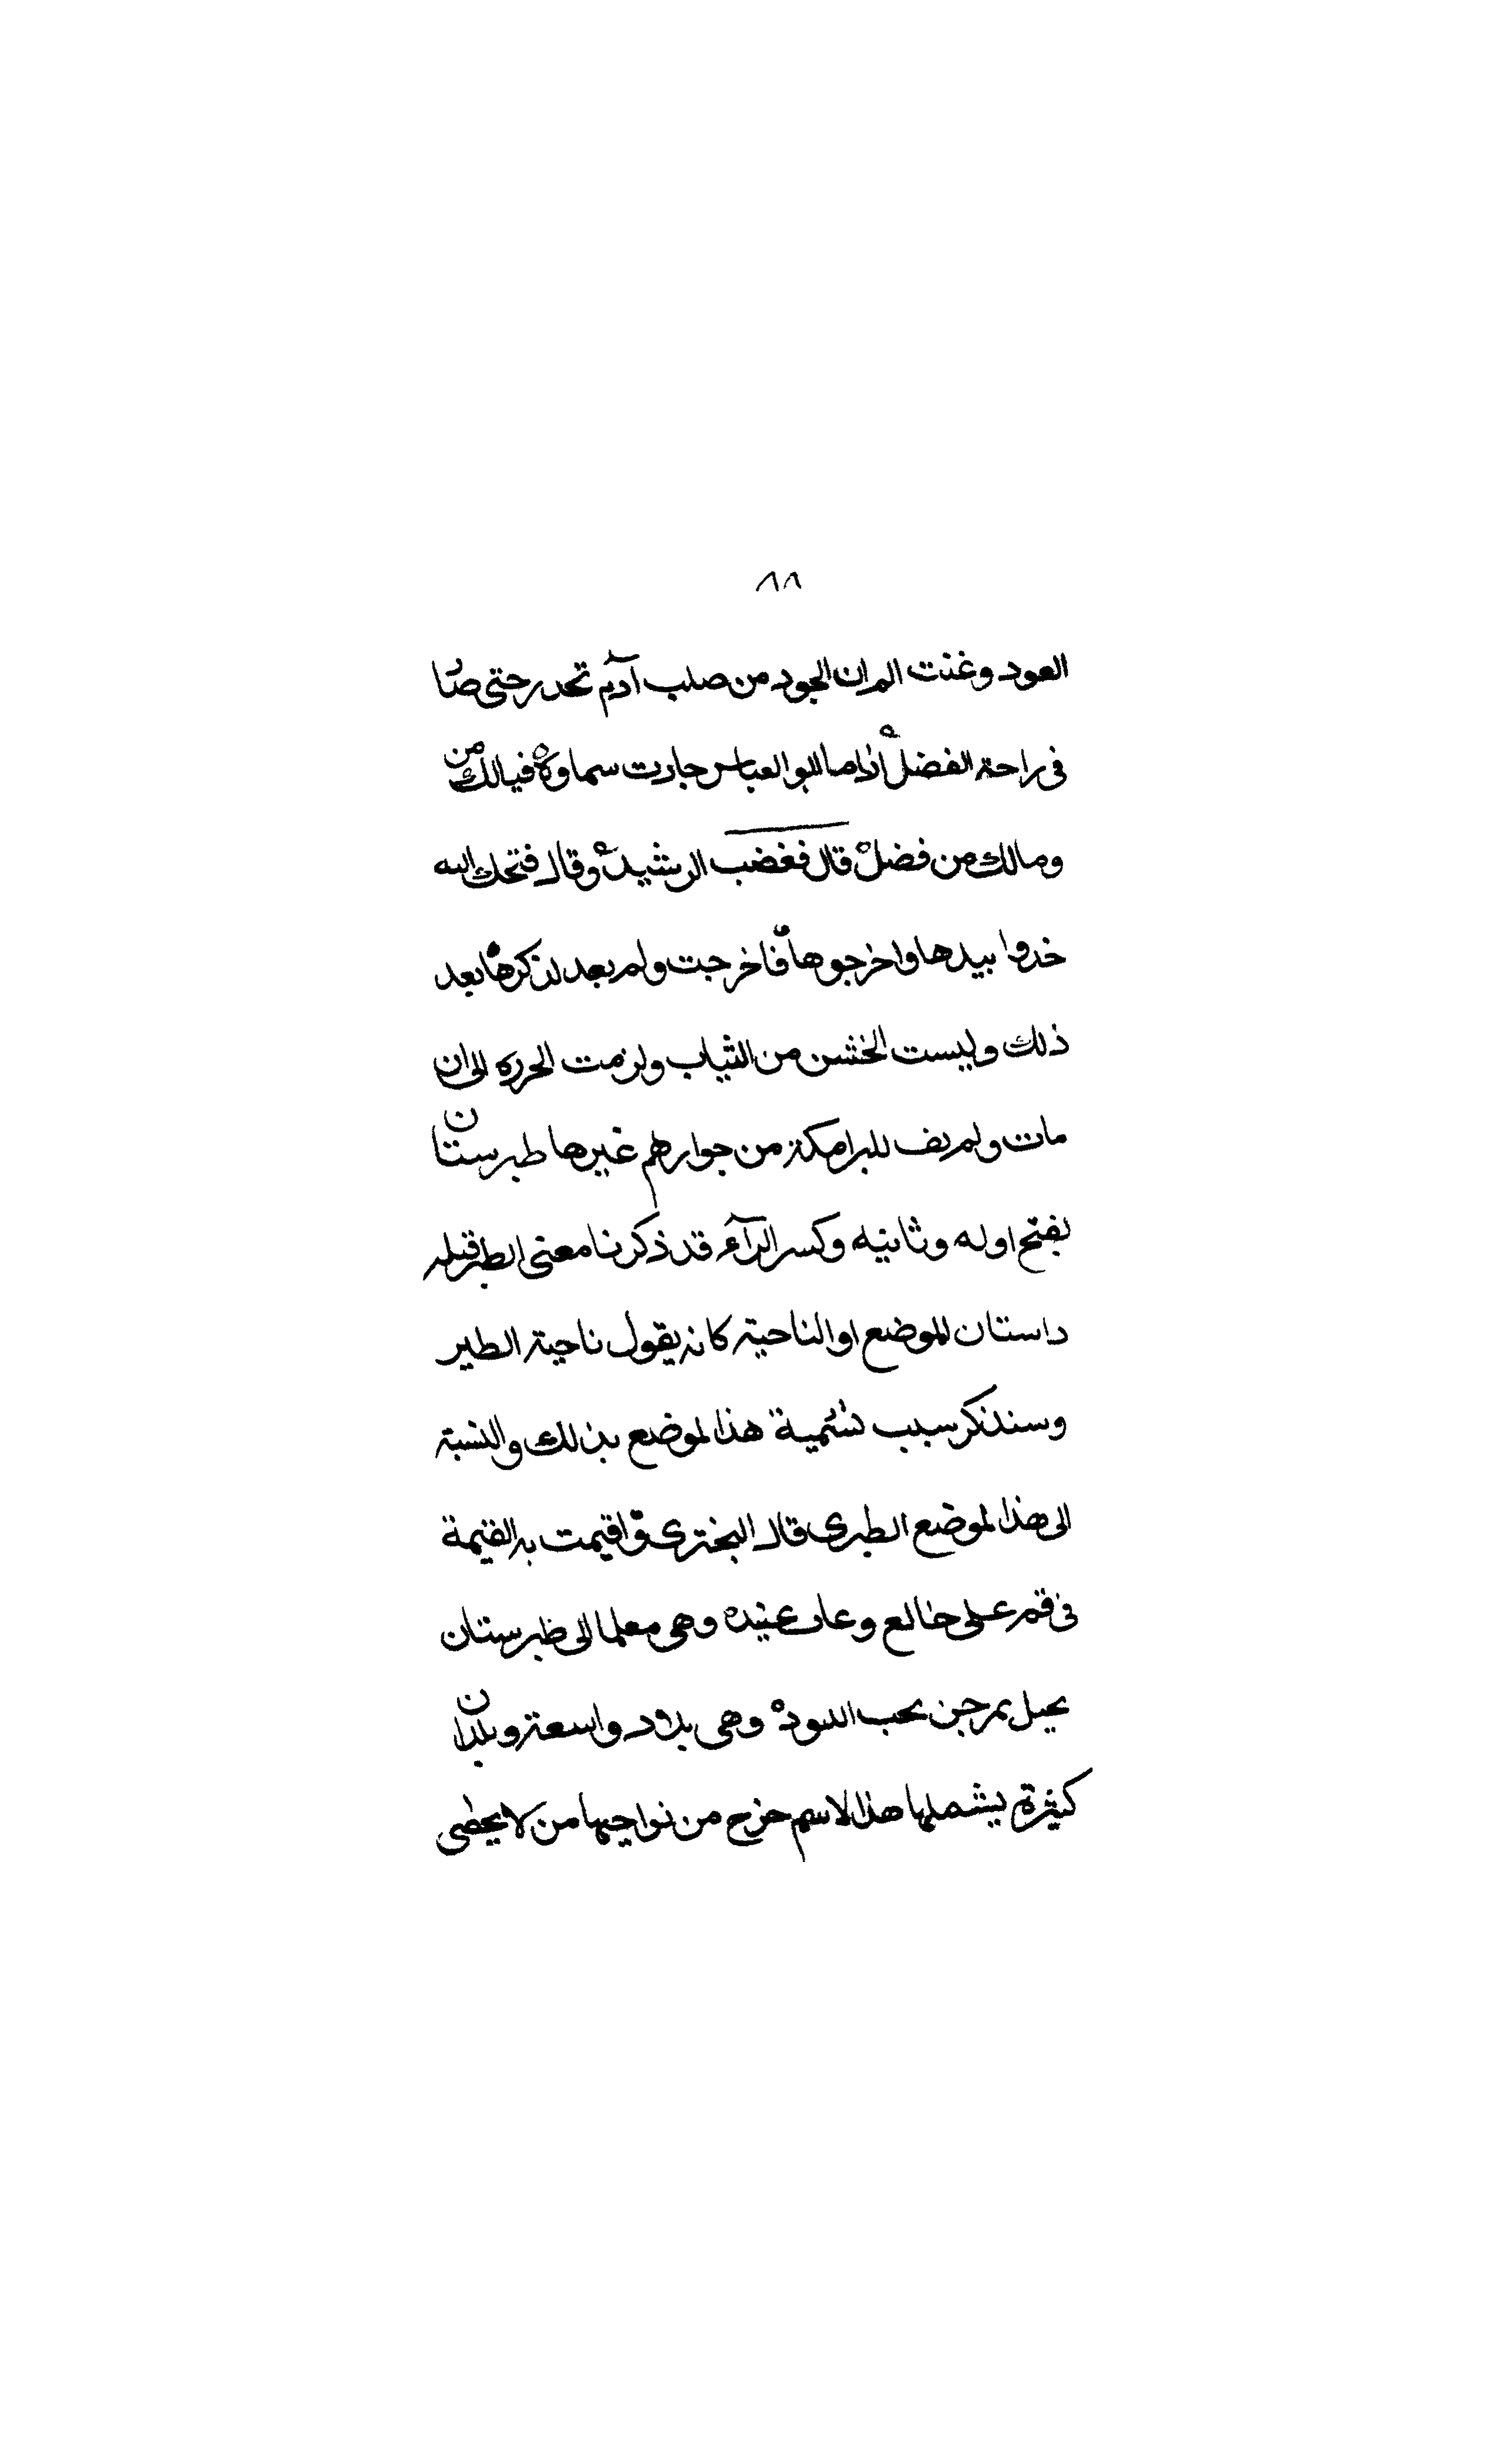 ٨٨
العود وغنت الم ان الجود من صلب آدم تحدر حتى صار
في راحة الفضل اذا ما ابو العباس جادت سماوه فيالك من
ومالك من فضل قال فغضب الرشيد وقال فتحك الله
خذوا بيدها واخرجوها فاخرجت ولم يعد لذكرها بعد
ذلك ولبست الخشن من الثياب ولزمت الحزن الى ان
مات ولم يف للبرامكة من جوارهم غيرها طبرستان
بفتح اوله وثانيه وكسر الرآء قد ذكرنا معنى الطبر قبله
داستان الموضع او الناحية كانه يقول ناحية الطير
وسنذكر سبب تسمية هذا لموضع بذلك والنسبة
الى هذا لموضع الطبرى قال البخترى واقيمت به القيمة
في قم على خالع وعات عنيده وهي معلما الى طبرستان
بخيل يرجن تحب اللبوده وهي بلاد واسعة وبلدان
كثيرة يشملها هذا الاسم خرج من نواحيها من لا يحصى